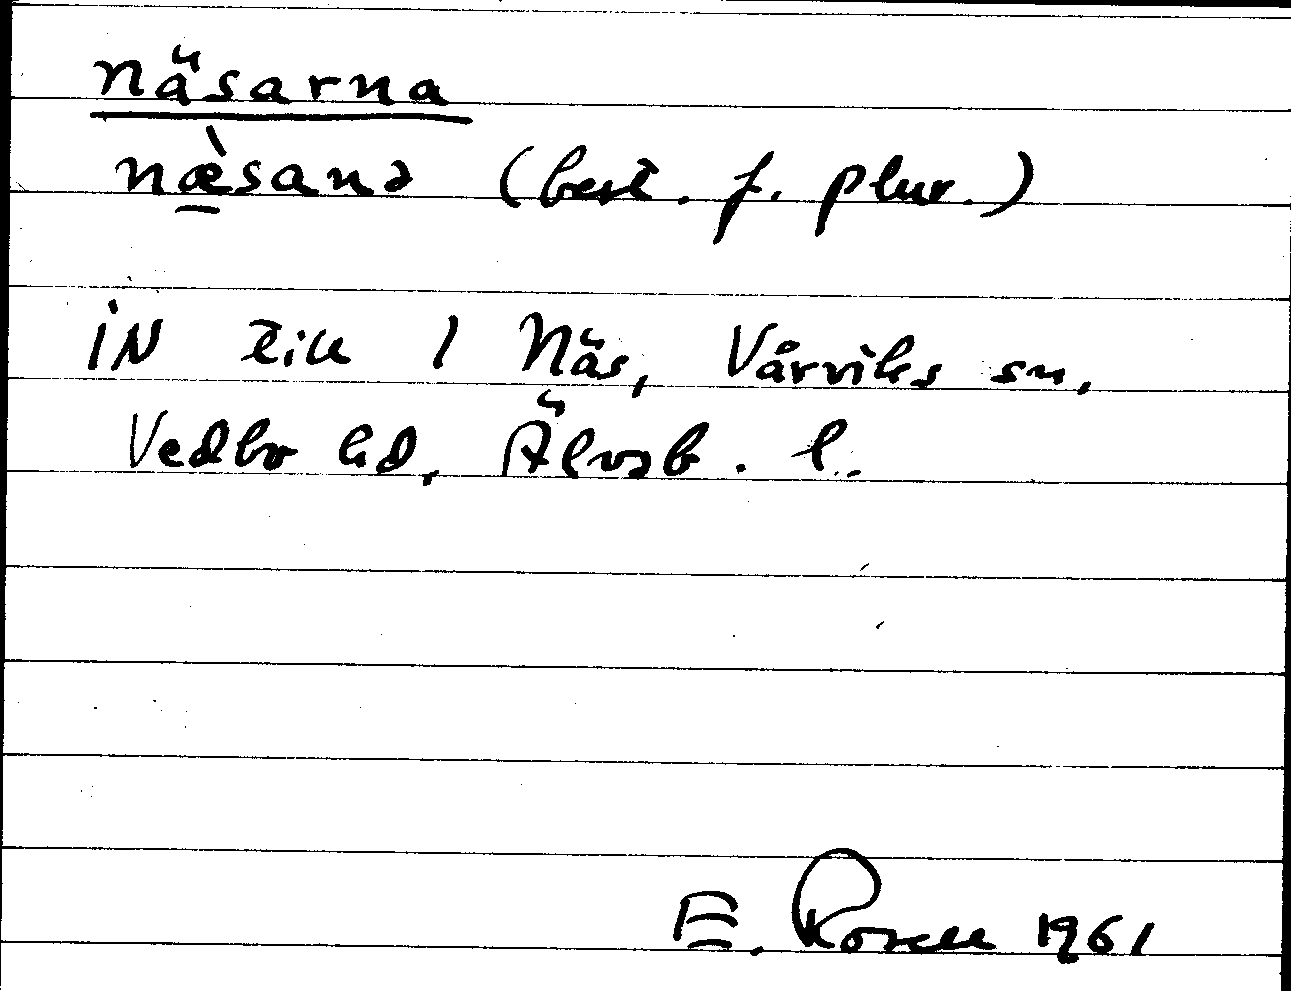 Näsarna
næ̀sanə (best. f. plur.)
IN till 1 Näs, Vårviks sn,
Vedbo hd, Älvsb. l.
E. Rosell 1961